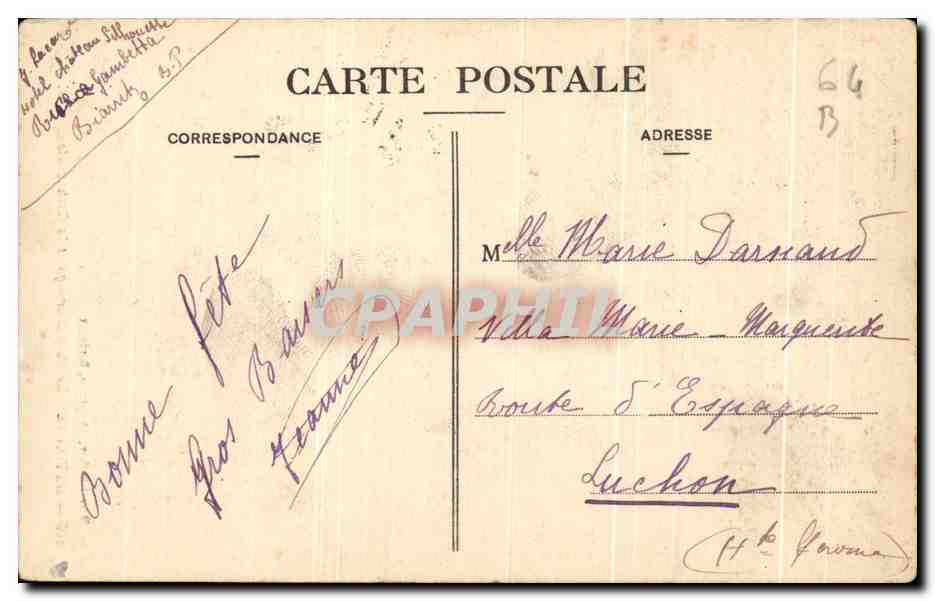 Hôtel Château Silhouette
Gambetta
Biarritz B.P.
CARTE POSTALE
64
B
CORRESPONDANCE
ADRESSE
Bonne fête
Gros Baisers
Jeanne
Mlle Marie Darnaud
Villa Marie - Marguerite
Route d'Espagne
Luchon
(Hte Garonne)
CPAPHIL